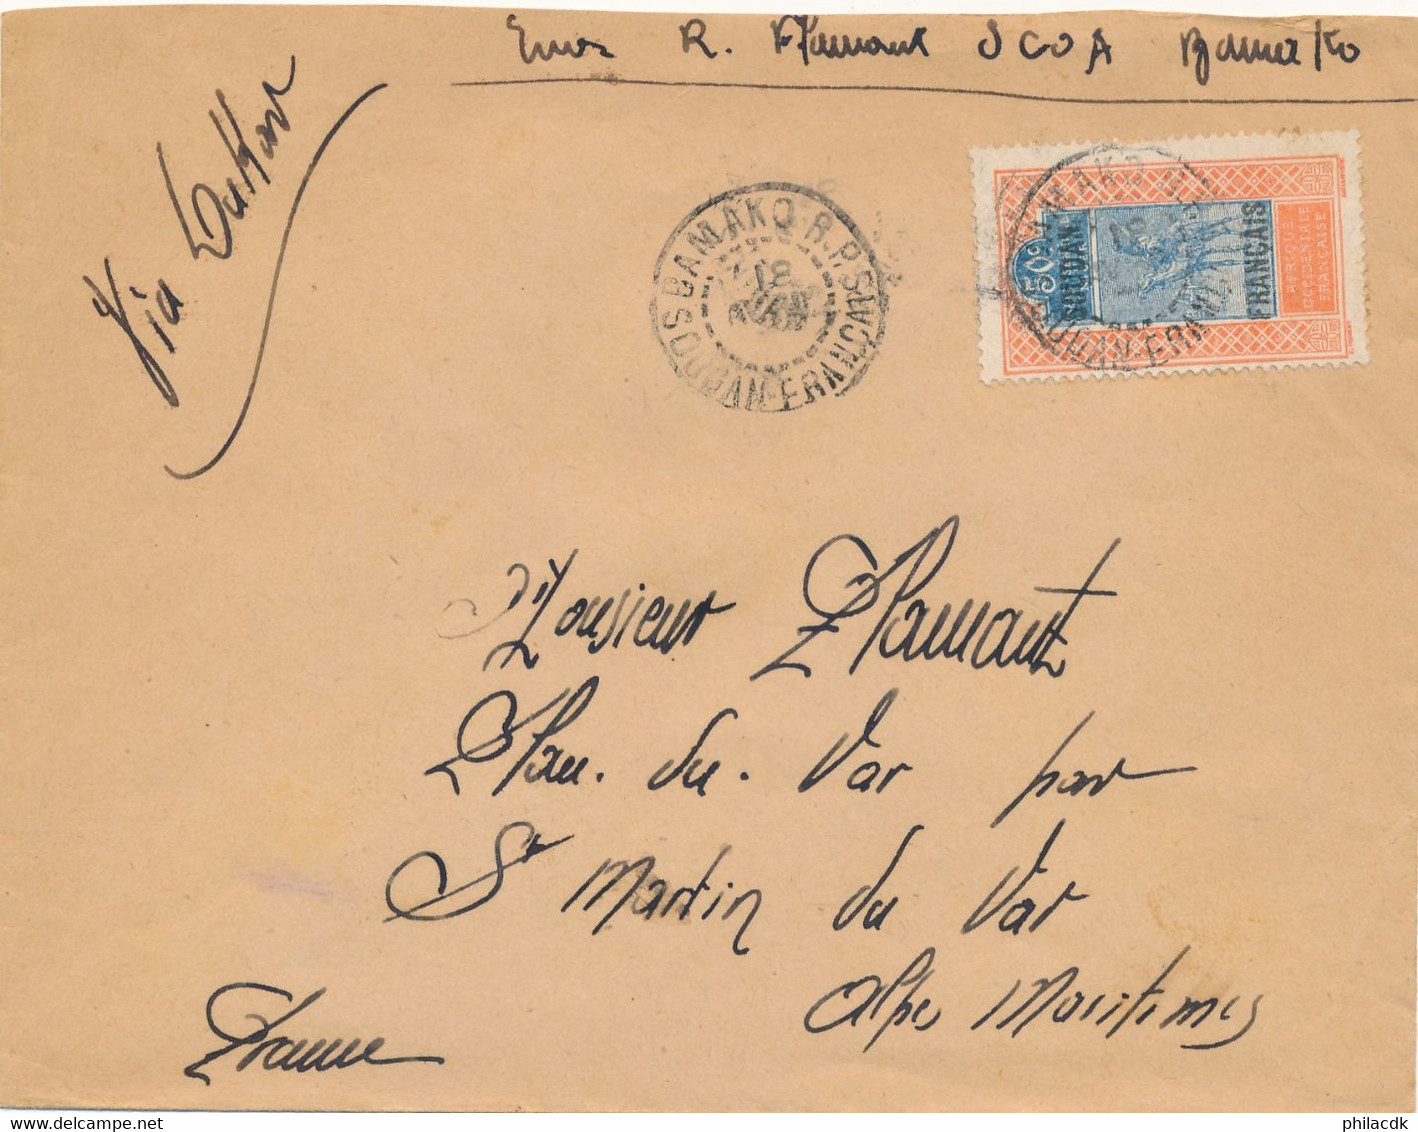 Env R. Flamant SCOA Bamako
Via Dakar
BAMAKO-R.P.
18
SOUDAN-FRANÇAIS
50c
SOUDAN
FRANÇAIS
AFRIQUE
OCCIDENTALE
FRANÇAISE
BAMAKO
18
SOUDAN-FRANÇAIS
Monsieur Flamant
Plan. du. Var par
St Martin du Var
Alpes Maritimes
France
www.delcampe.net
philacdk